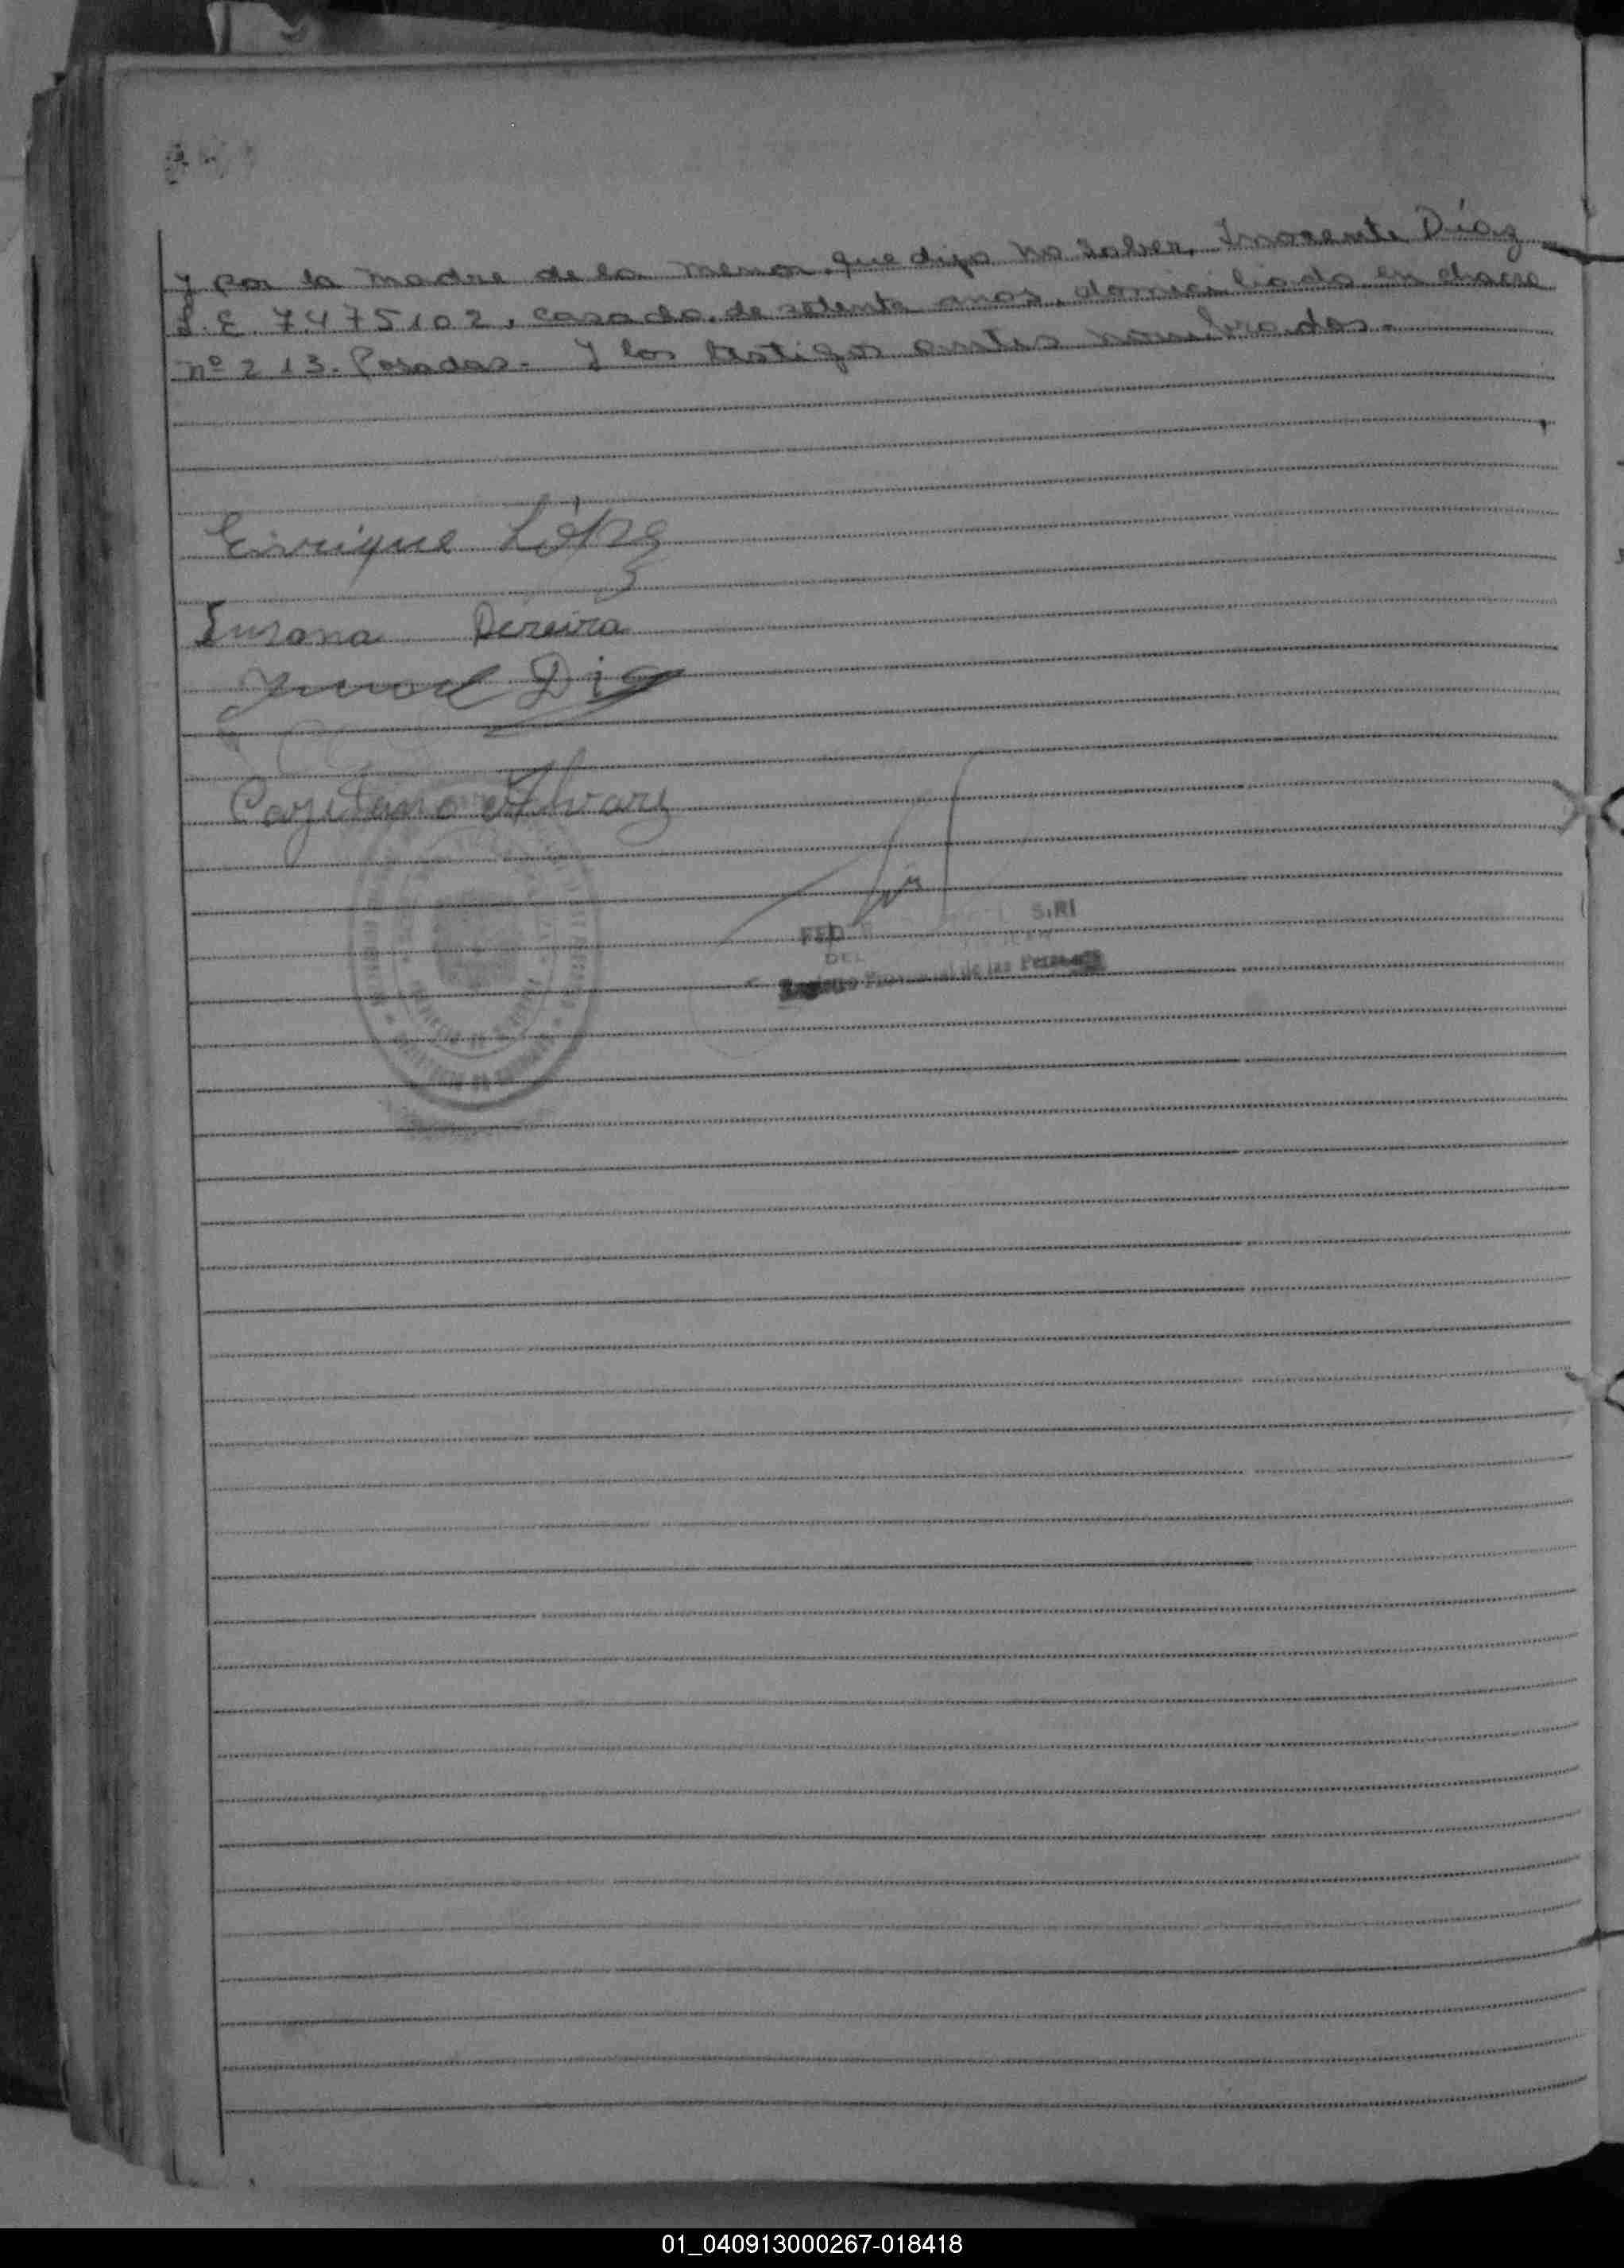 y por la madre de la menor, que dijo no saber, Inocente Díaz
L.E. 7475102, casado, de setenta anos, domiciliado en chacra
nº 213. Posadas. Y los testigos antes nombrados.
Enrique López
Susana Pereira
Diaz
Cayetano Alvarez
S.RI
FED
DEL
Registro Provincial de las Personas
01_040913000267-018418